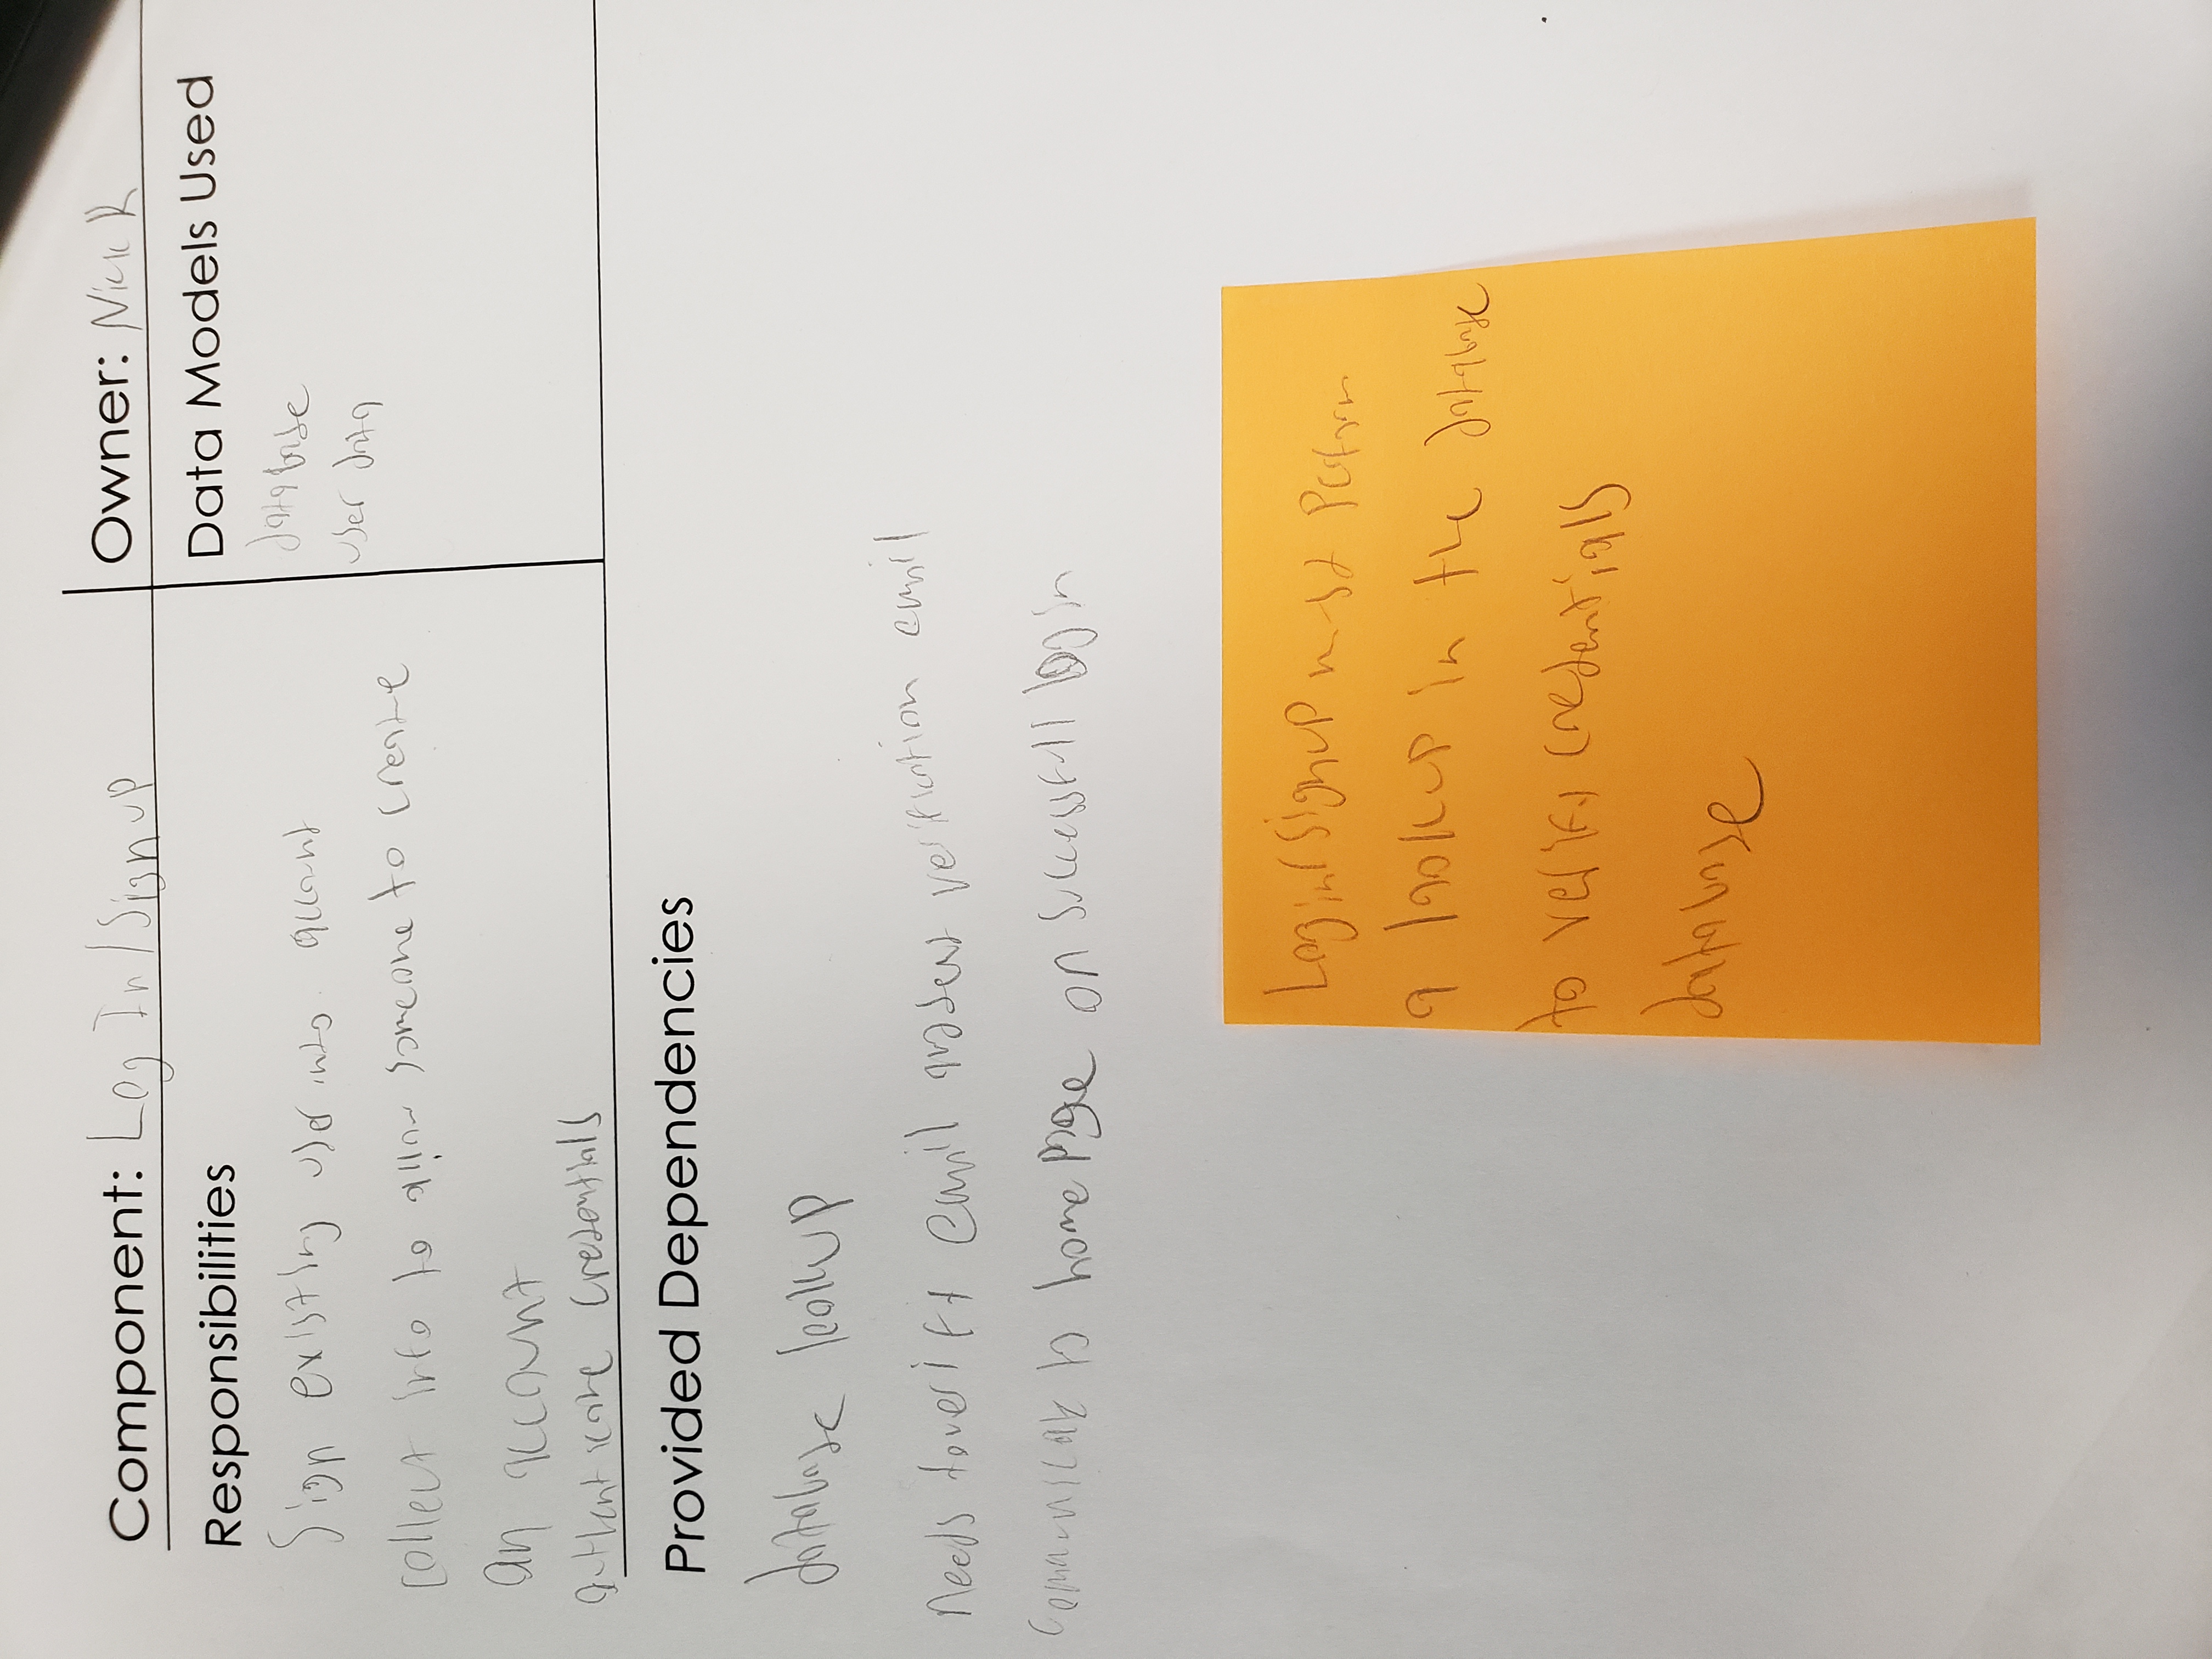 Component: Log In/Signup
Owner: Nick R
Responsibilities
Sign existing user into account
collect info to allow someone to create
an account
authenticate credentials
Data Models Used
database
user data
Provided Dependencies
database lookup
Needs to verify email sent verification email
communicate to home page on successfull log in
Login/Signup must perform
a lookup in the database
to verify credentials
database